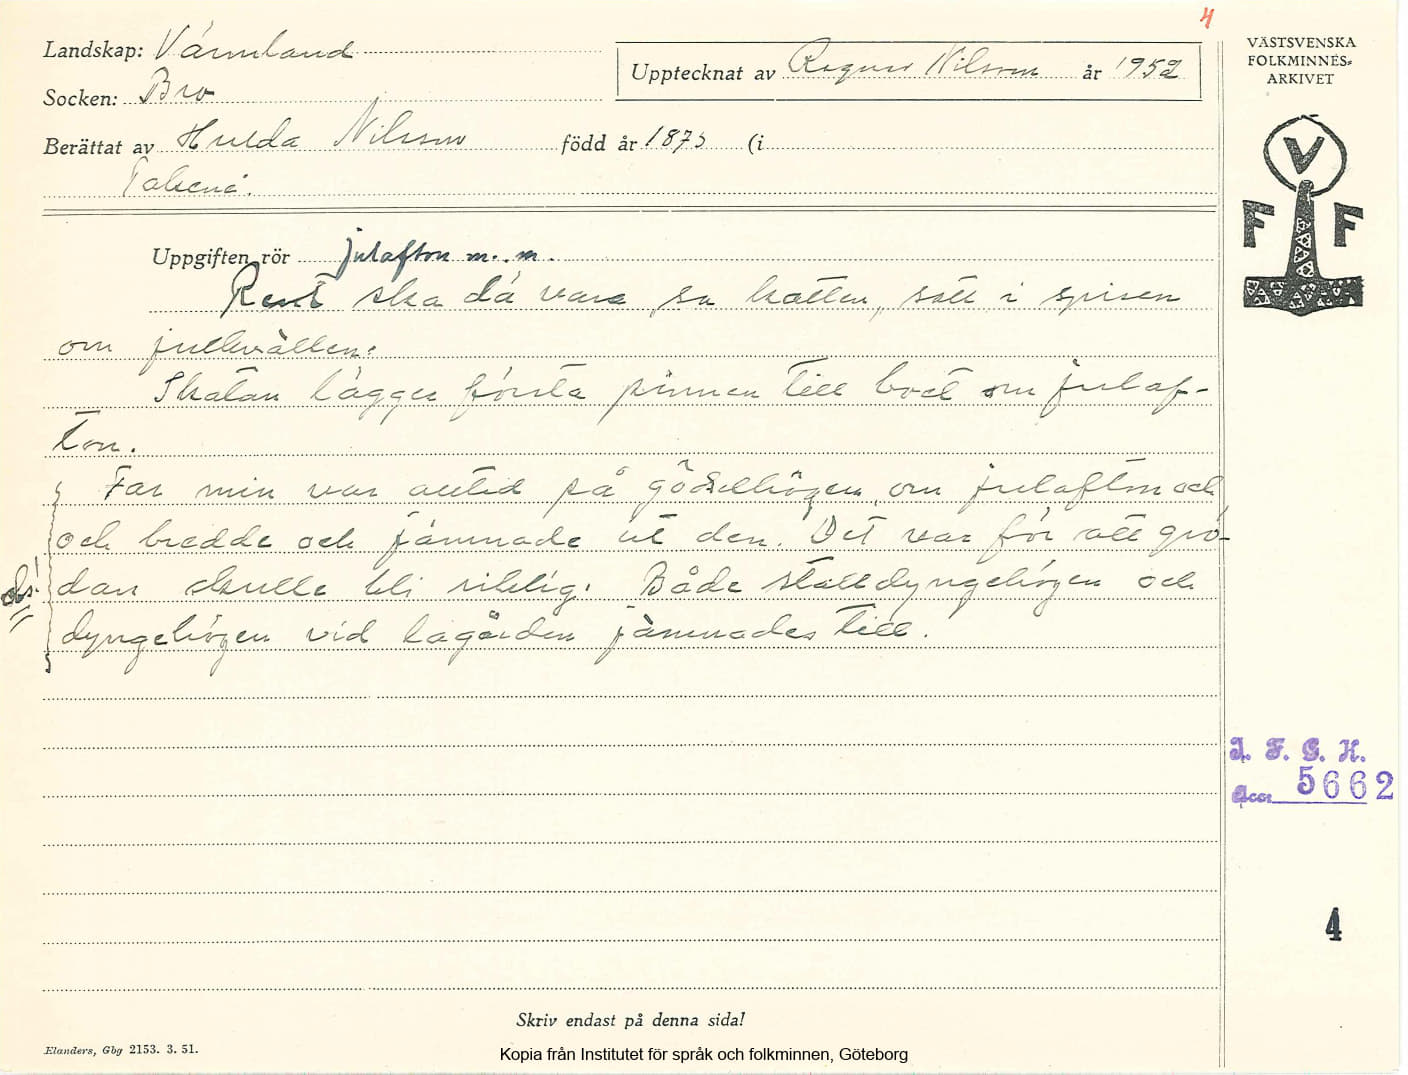 4
Landskap: Värmland
Upptecknat av Ragnar Nilsson år 1952
VÄSTSVENSKA
FOLKMINNES-
ARKIVET
Socken: Bro
Berättat av Hulda Nilsson född år 1873 (i
V
F F
Uppgiften rör julafton m. m.
Rent ska dä vara, sa katten, satt i spisen
om julkvällen.
Skatan lägger första pinnen till boet om julaf-
ton.
Far min var alltid på gödselhögen om julafton och
och bredde och jämnade ut den. Det var för att grö-
dan skulle bli riklig. Både stalldyngehögen och
obs!
dyngehögen vid lagården jämnades till.
I. F. G. H.
Acc. 5662
4
Skriv endast på denna sida!
Elanders, Gbg 2153. 3. 51.
Kopia från Institutet för språk och folkminnen, Göteborg